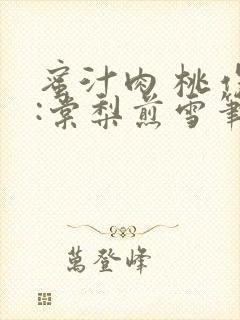 蜜汁肉桃作
:棠梨煎雪筆
萬登峰